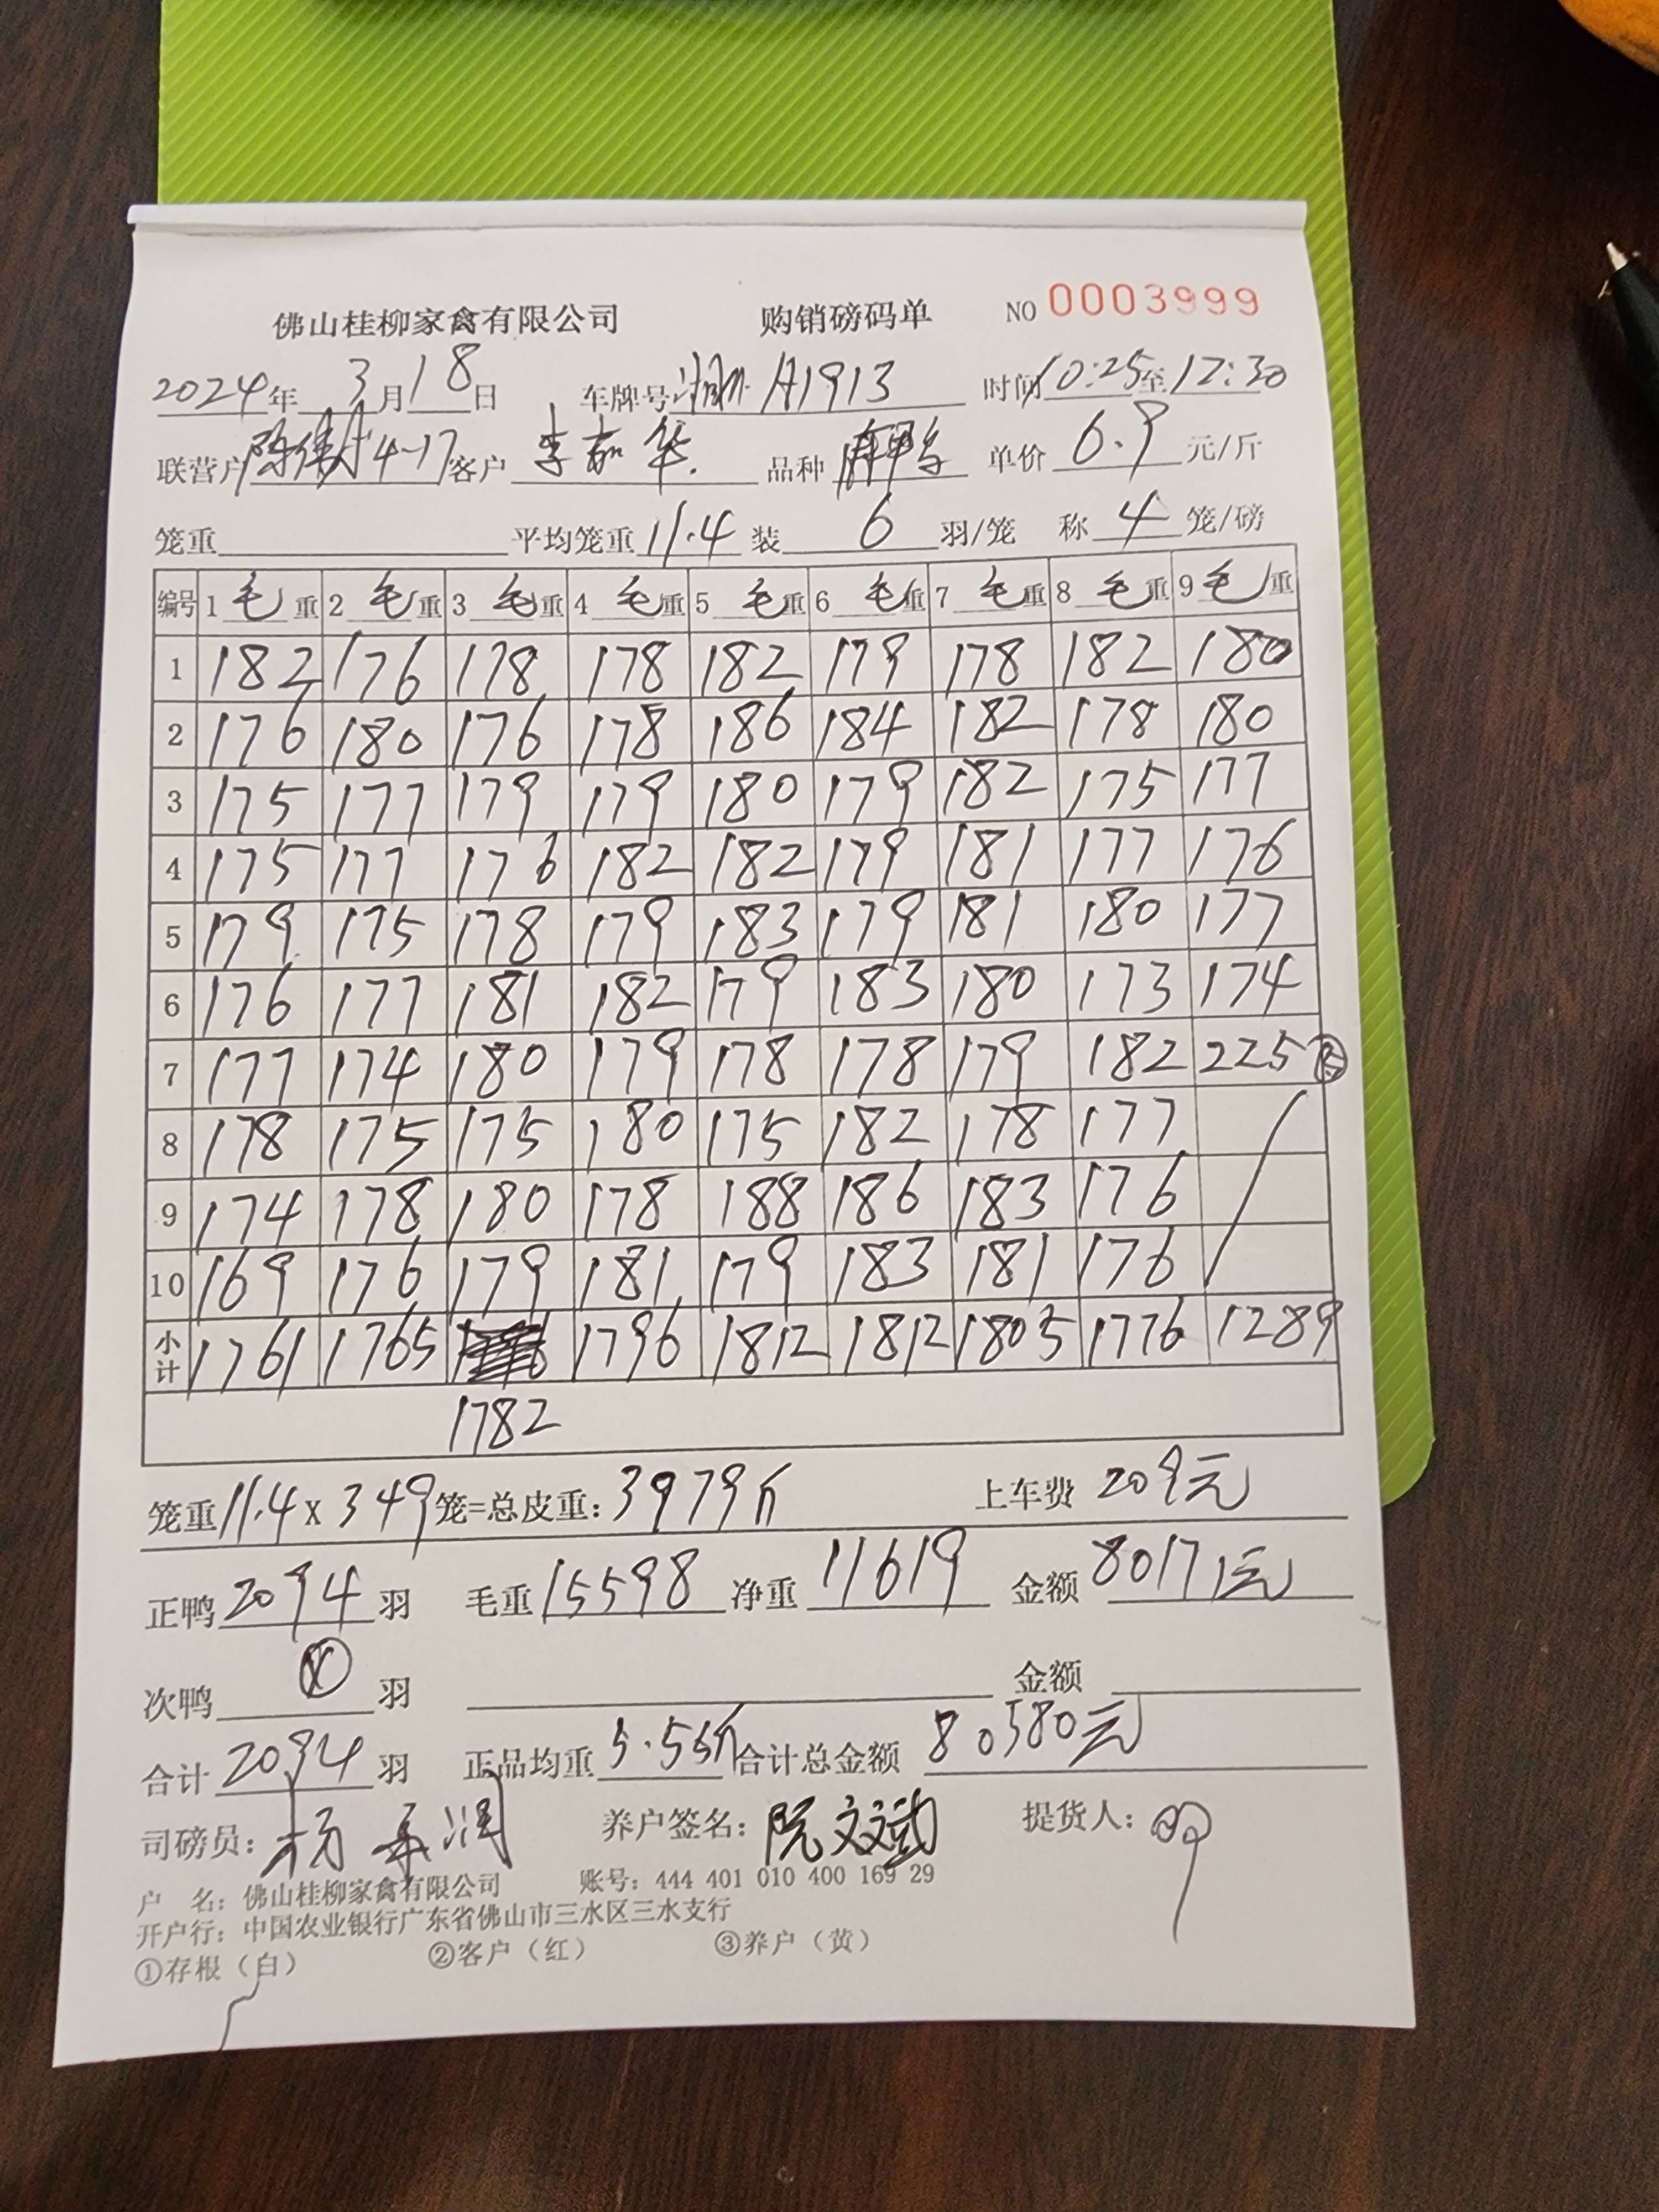 佛山桂柳家禽有限公司 购销磅码单 NO 0003999
2024年 3月18日 车牌号 A1913 时间10:25至12:30
联营户 4-17 客户 李嘉华 品种 单价 6.9 元/斤
笼重 平均笼重 11.4 装 6 羽/笼 称 4 笼/磅
编号 1 毛重 2 毛重 3 毛重 4 毛重 5 毛重 6 毛重 7 毛重 8 毛重 9 毛重
1 182 176 178 178 182 179 178 182 180
2 176 180 176 178 186 184 182 178 180
3 175 177 179 179 180 179 182 175 177
4 175 177 176 182 182 179 181 177 176
5 179 175 178 179 183 179 181 180 177
6 176 177 181 182 179 183 180 173 174
7 177 174 180 179 178 178 179 182 225
8 178 175 175 180 175 182 178 177
9 174 178 180 178 188 186 183 176
10 169 176 179 181 179 183 181 176
小计 1761 1765 1796 1812 1812 1805 1776 1289
1782
笼重11.4 x 349笼=总皮重：3979斤 上车费 209元
正鸭 2094 羽 毛重 15598 净重 11619 金额 80171元
次鸭 羽 金额
合计 2094 羽 正品均重 5.55斤 合计总金额 80380元
司磅员： 养户签名：阮文斌 提货人：
户 名：佛山桂柳家禽有限公司 账号：444 401 010 400 169 29
开户行：中国农业银行广东省佛山市三水区三水支行
①存根（白） ②客户（红） ③养户（黄）